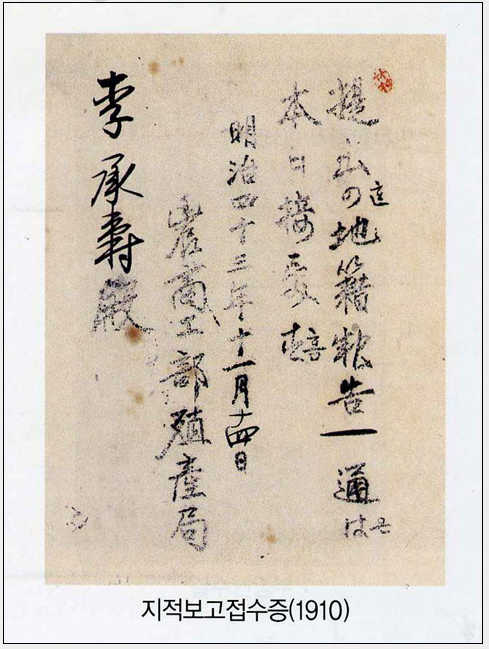 提出の地籍報告一通は
本日接受
明治四十三年十一月十四日
農商工部殖産局
李承壽殿
지적보고접수증(1910)